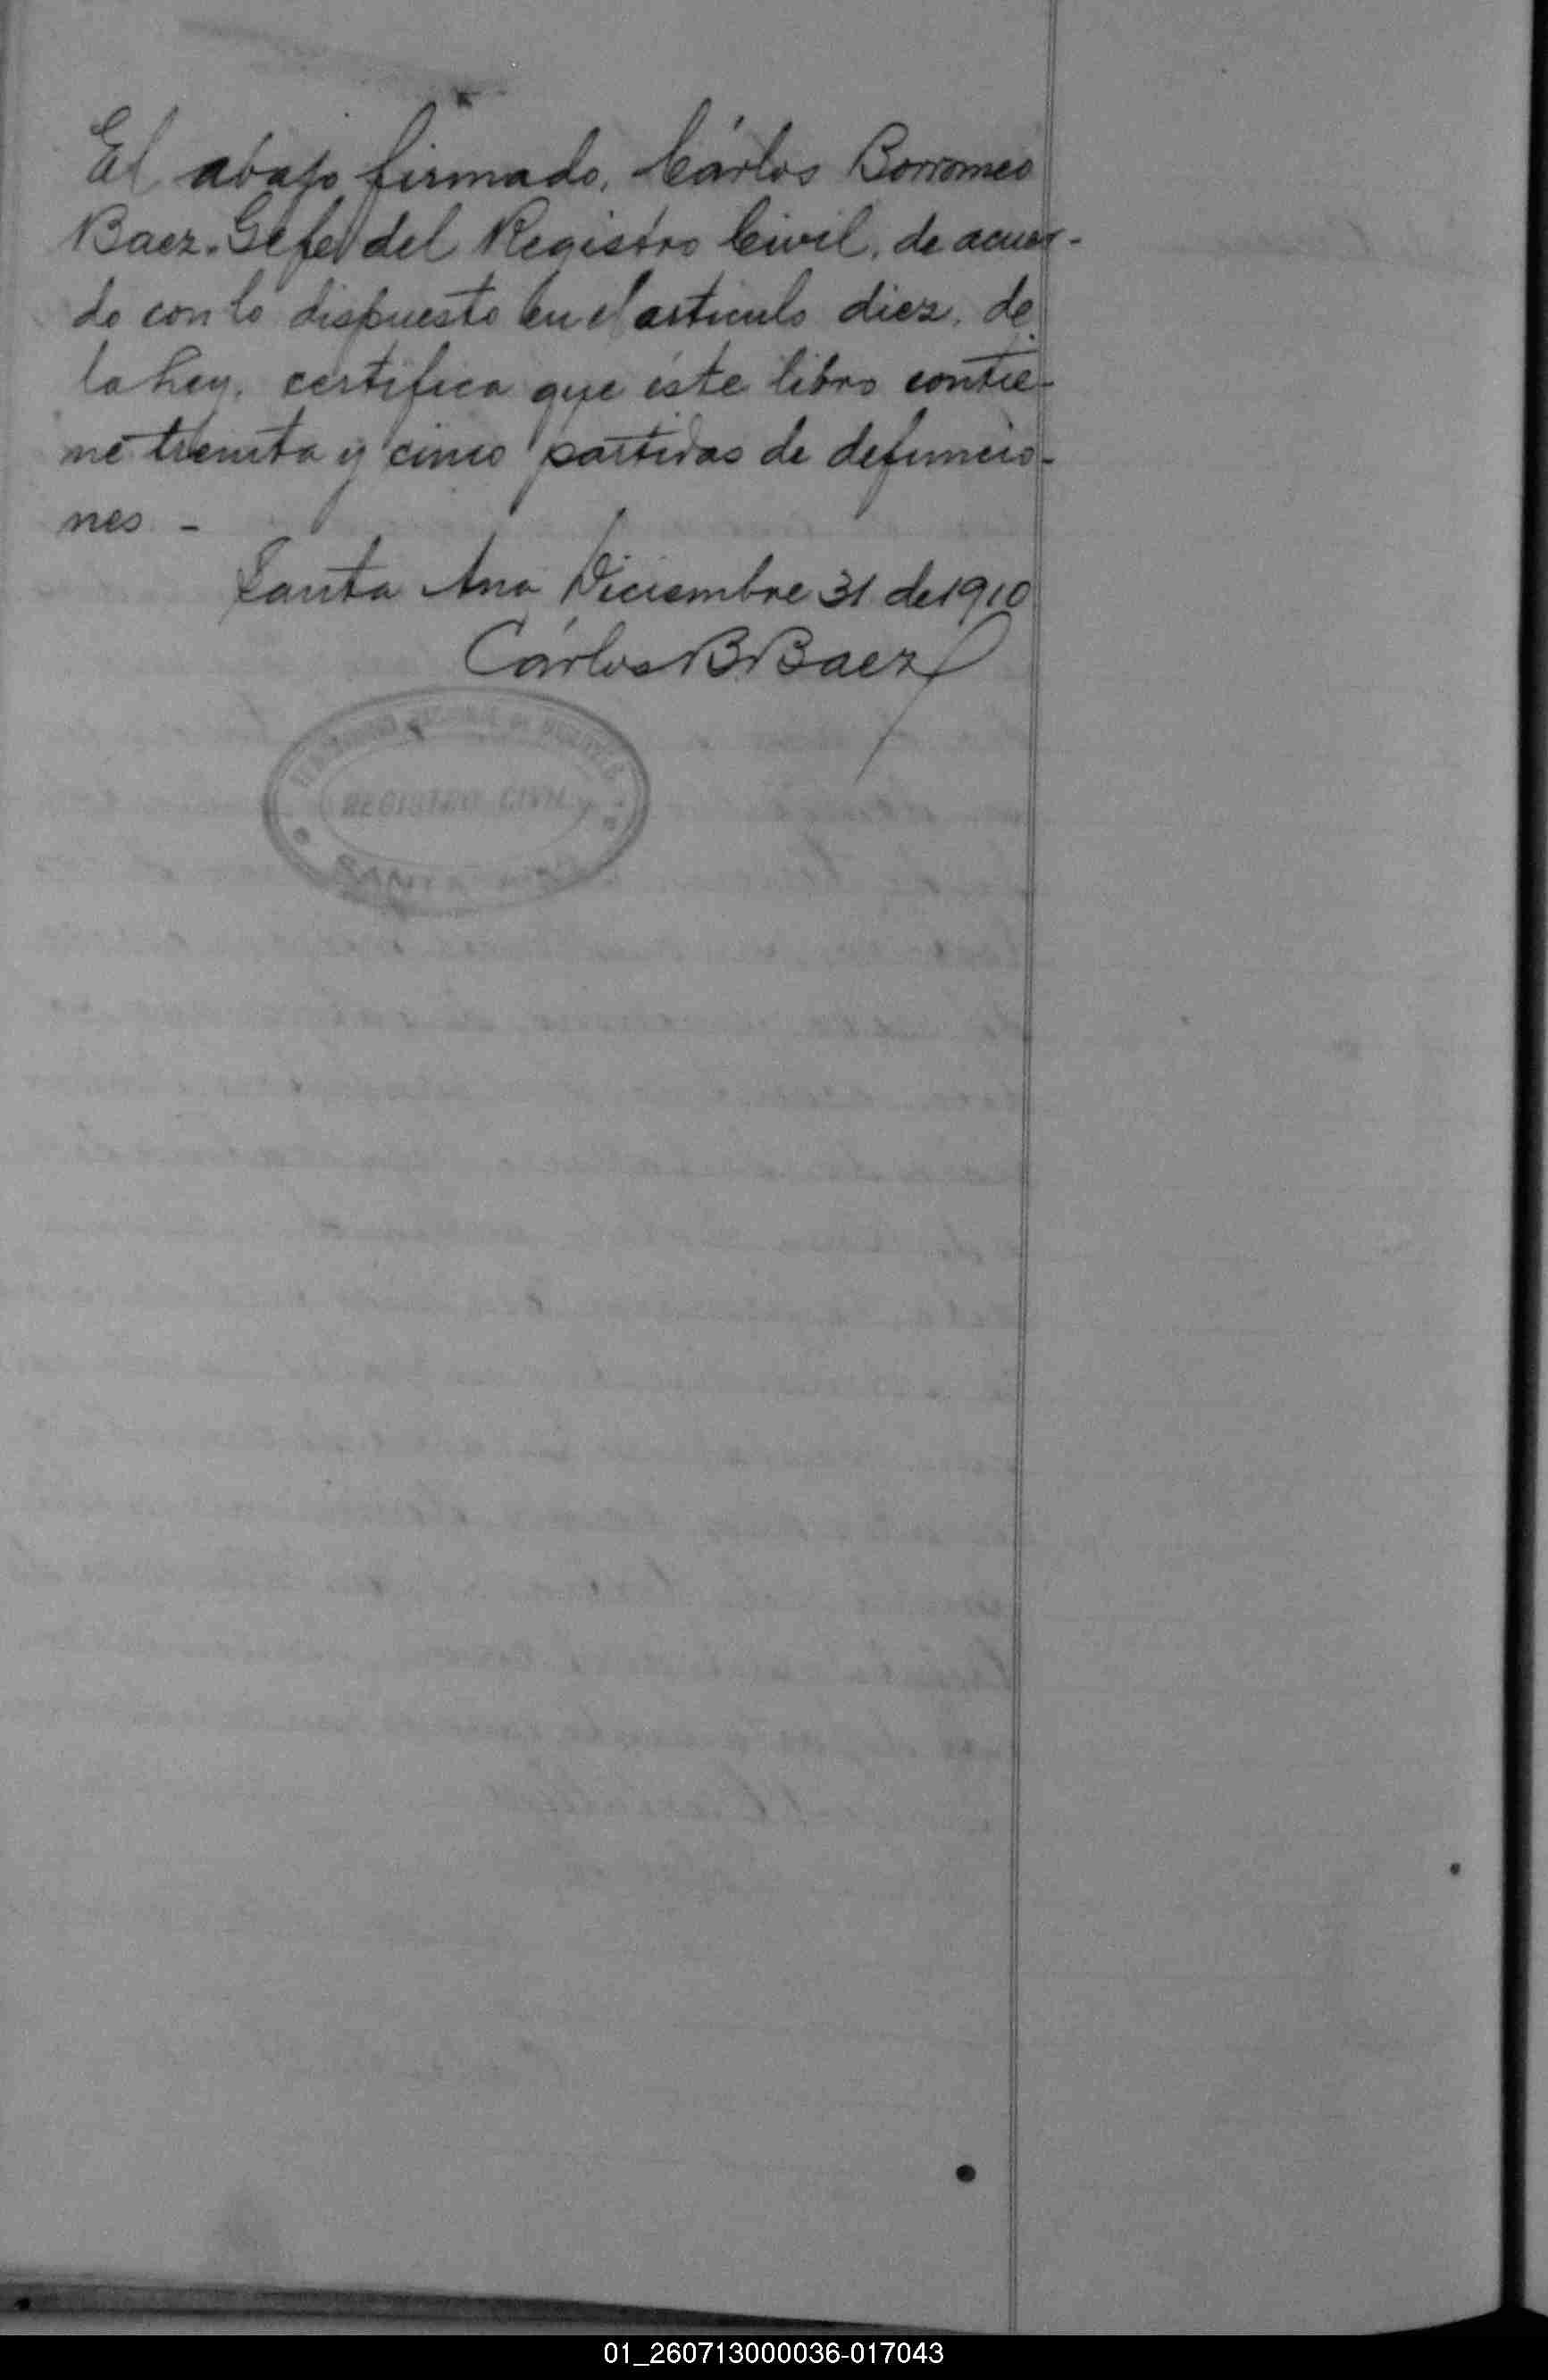 El abajo firmado, Cárlos Borromeo
Baez. Gefe del Registro Civil, de acuer-
do con lo dispuesto en el articulo diez, de
la Ley, certifica que éste libro contie-
ne treinta y cinco partidas de defuncio-
nes -
Santa Ana Diciembre 31 de 1910
Cárlos B. Baez
REGISTRO CIVIL
SANTA ANA
01_260713000036-017043